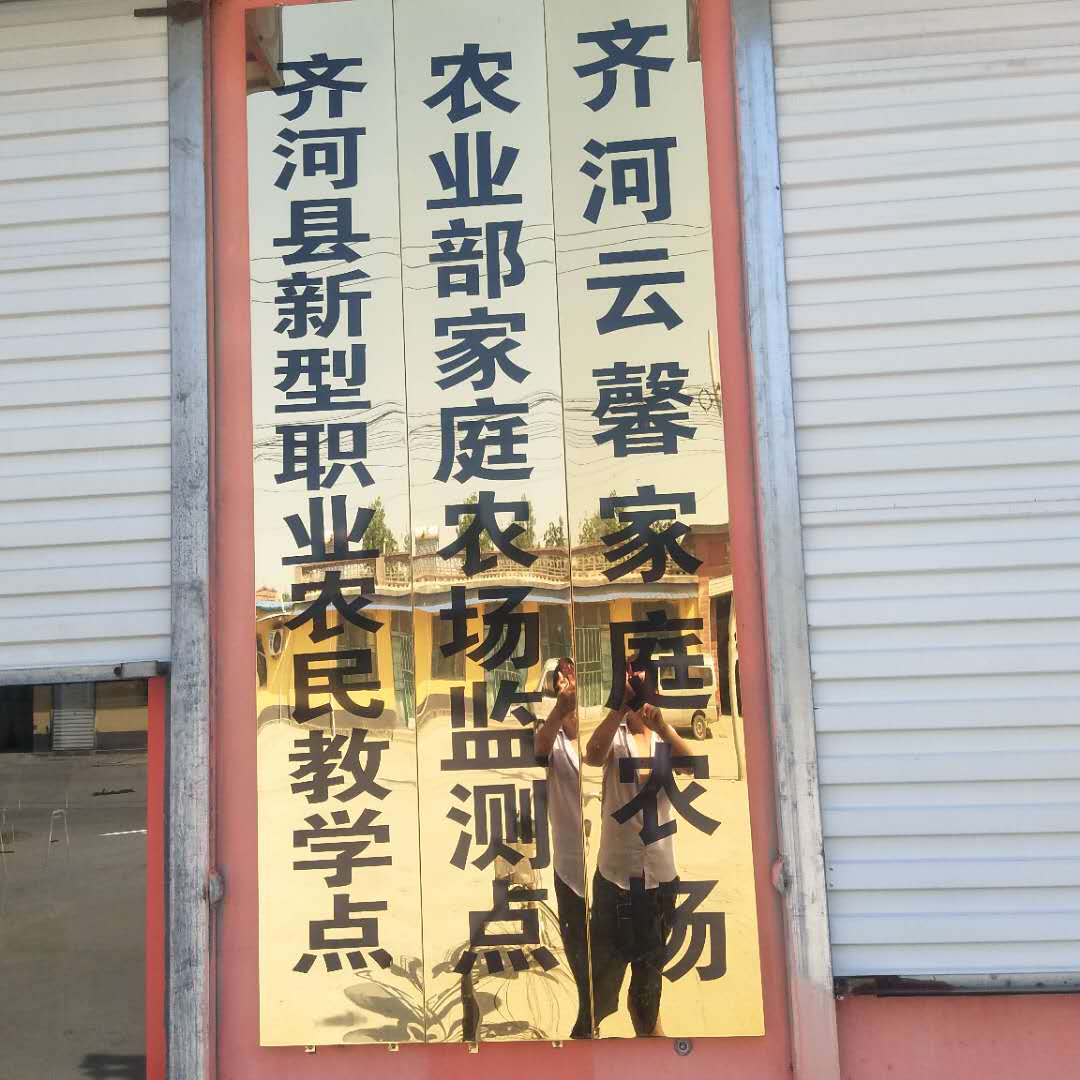 齐河云馨家庭农场
农业部家庭农场监测点
齐河县新型职业农民教学点